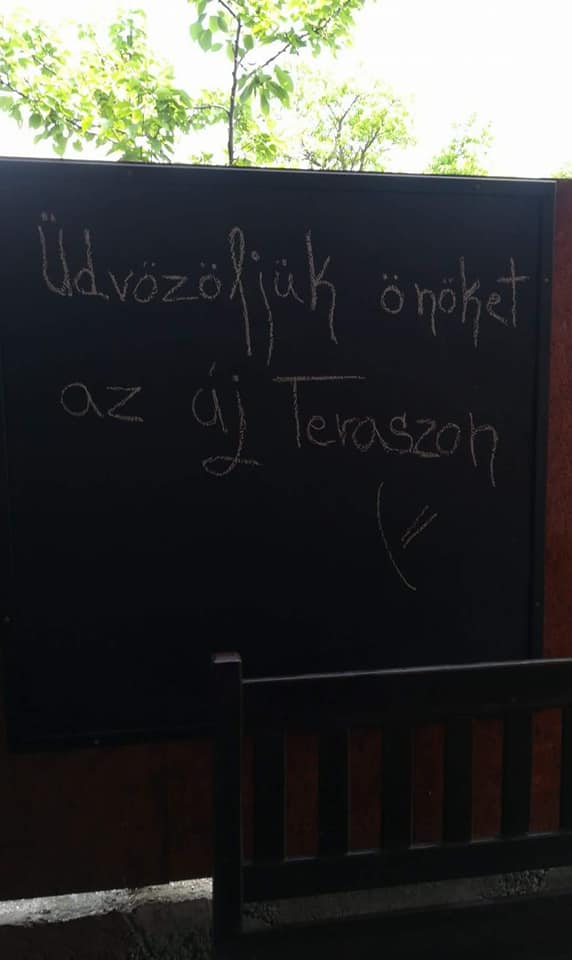 Üdvözöljük önöket
az új Teraszon